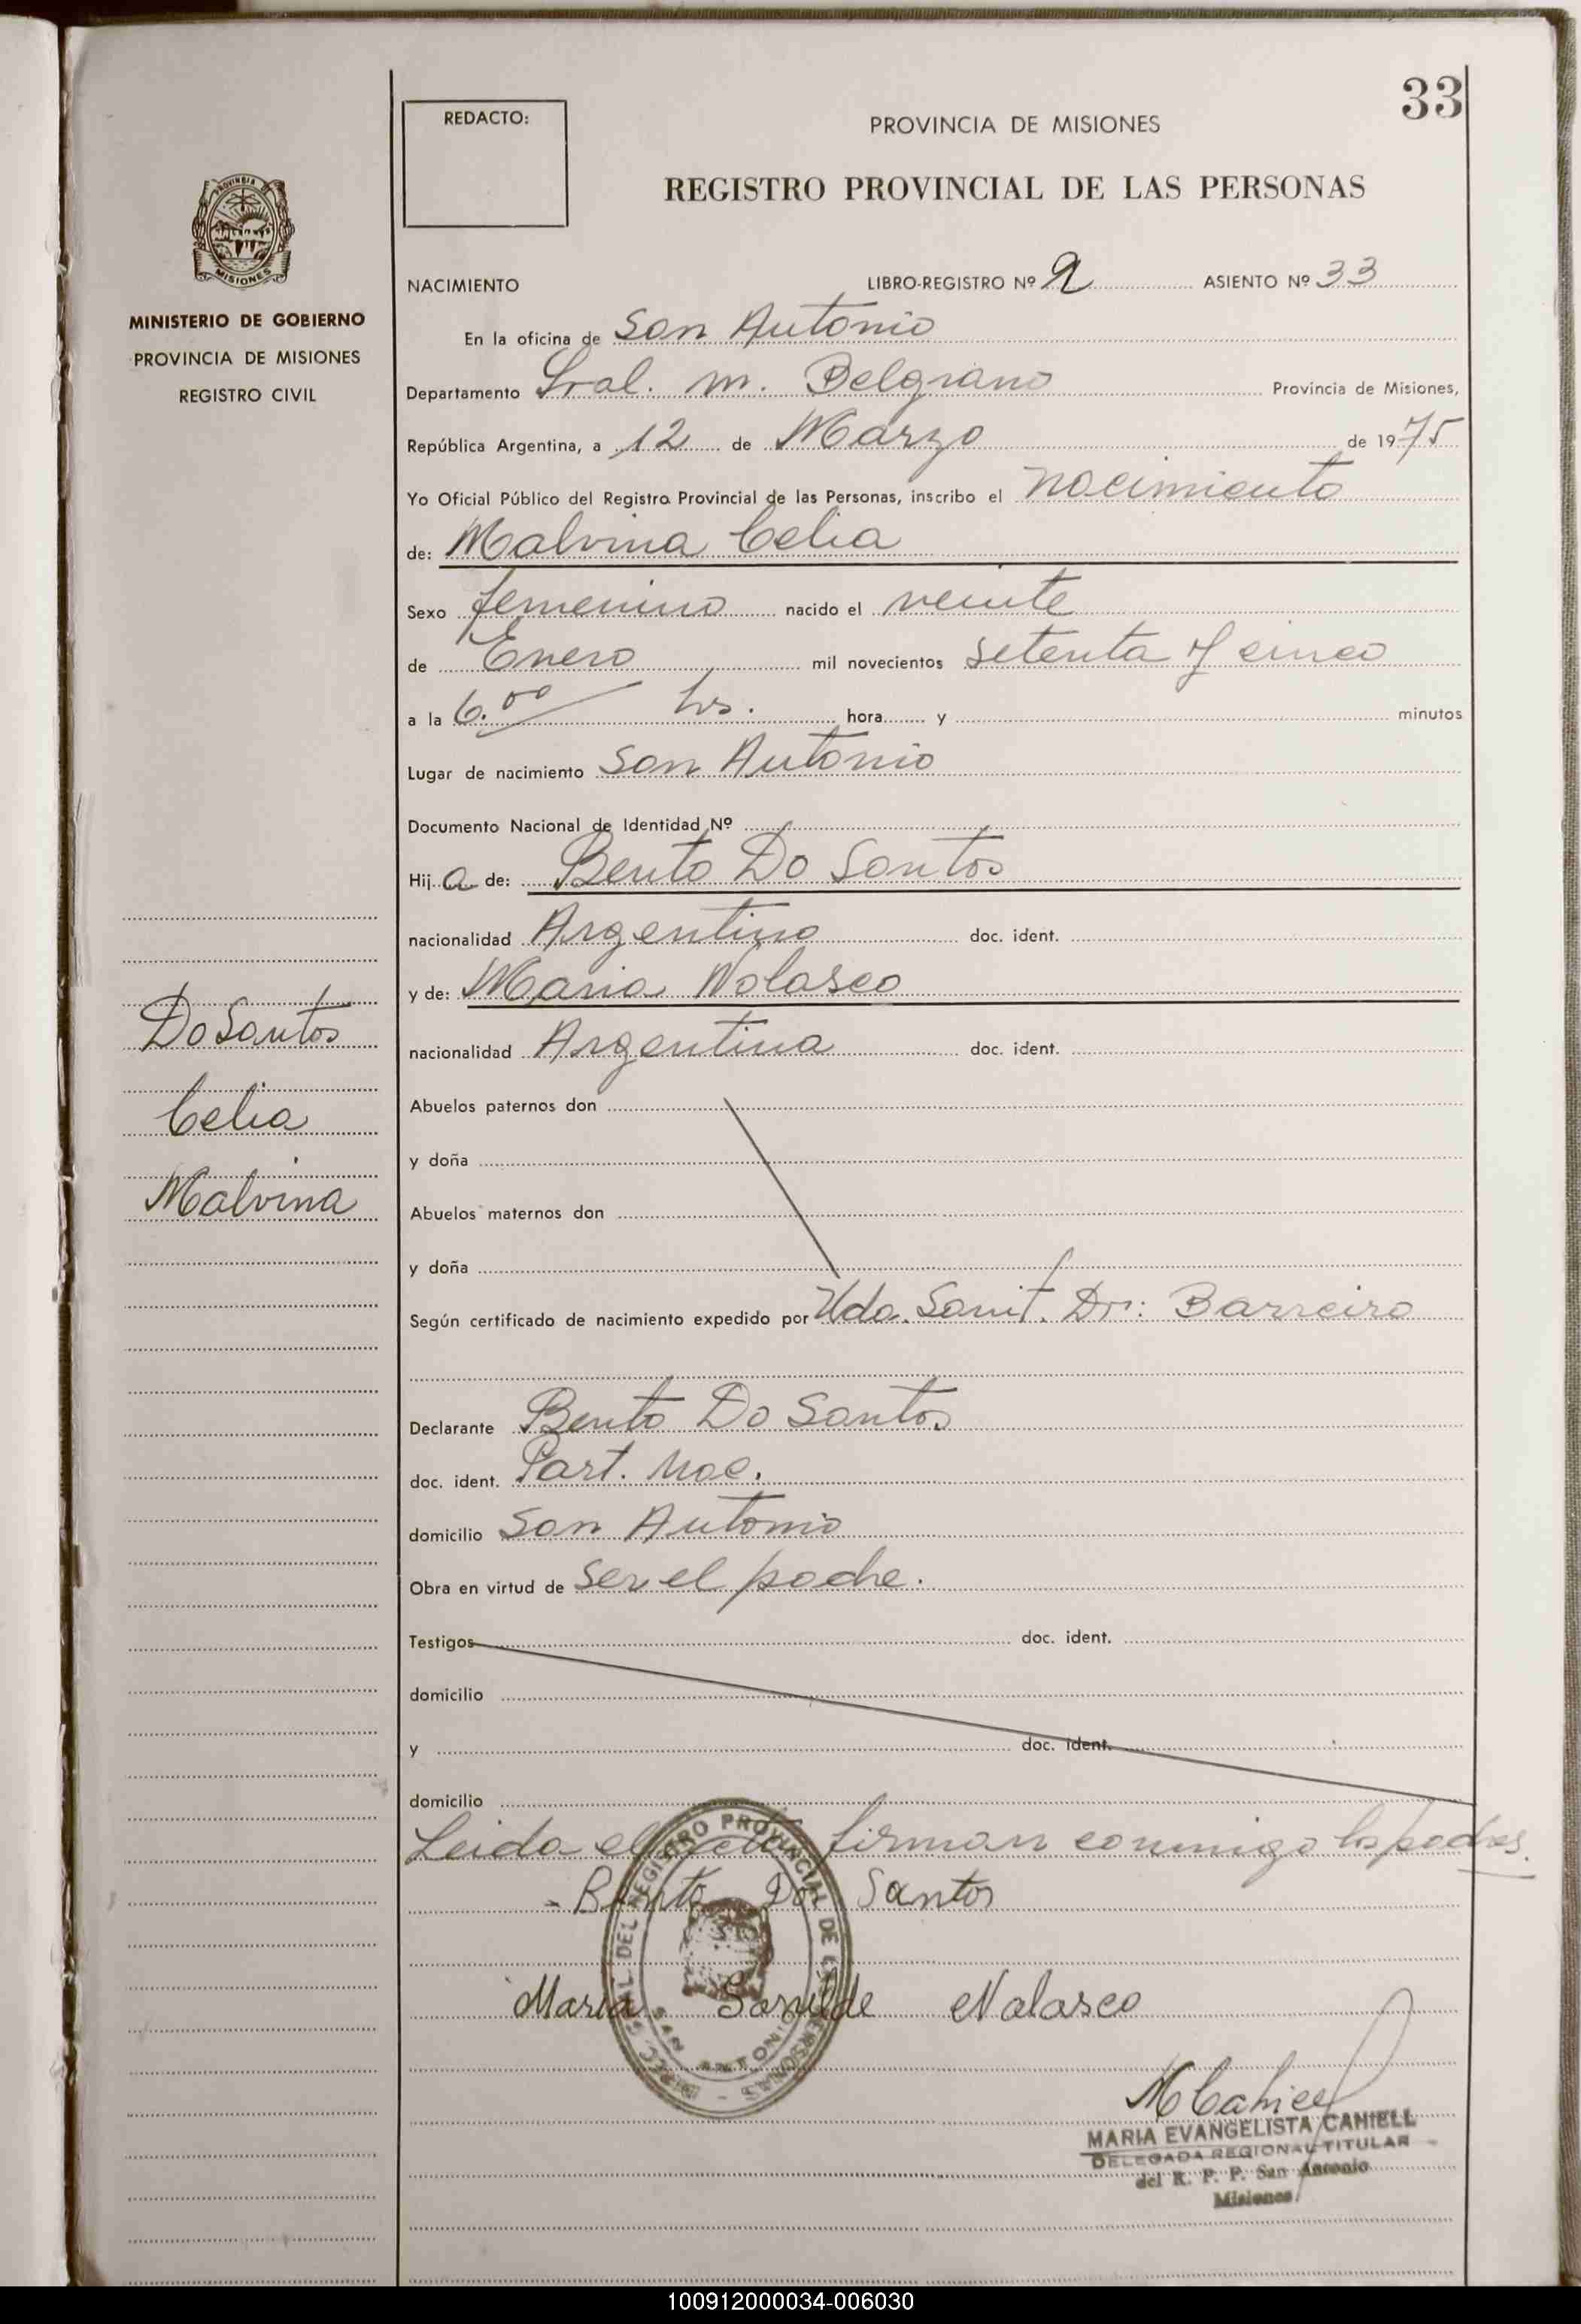 33
REDACTO:
PROVINCIA DE MISIONES
REGISTRO PROVINCIAL DE LAS PERSONAS
PROVINCIA DE
MISIONES
MINISTERIO DE GOBIERNO
PROVINCIA DE MISIONES
REGISTRO CIVIL
NACIMIENTO LIBRO-REGISTRO Nº 2 ASIENTO Nº 33
En la oficina de San Antonio
Departamento Gral. M. Belgrano Provincia de Misiones,
República Argentina, a 12 de Marzo de 1975
Yo Oficial Público del Registro Provincial de las Personas, inscribo el nacimiento
de: Malvina Celia
Sexo femenino nacido el veinte
de Enero mil novecientos setenta y cinco
a la 6.00 hs. hora y minutos
Lugar de nacimiento San Antonio
Documento Nacional de Identidad Nº
Hij a de: Bento Do Santos
nacionalidad Argentino doc. ident.
y de: Maria Nolasco
nacionalidad Argentina doc. ident.
Do Santos
Celia
Malvina
Abuelos paternos don
y doña
Abuelos maternos don
y doña
Según certificado de nacimiento expedido por Uda. Sanit. Dr: Barreiro
Declarante Bento Do Santos
doc. ident. Part. Nac.
domicilio San Antonio
Obra en virtud de ser el padre.
Testigos doc. ident.
domicilio
y doc. ident.
domicilio
Leida el acta firman conmigo los padres.
Bento Dos Santos
DEL REGISTRO PROVINCIAL DE LAS PERSONAS
SAN ANTONIO
Maria Nalasco
MCahiell
MARIA EVANGELISTA CAHIELL
DELEGADA REGIONAL TITULAR
del R. P. P. San Antonio
Misiones
100912000034-006030